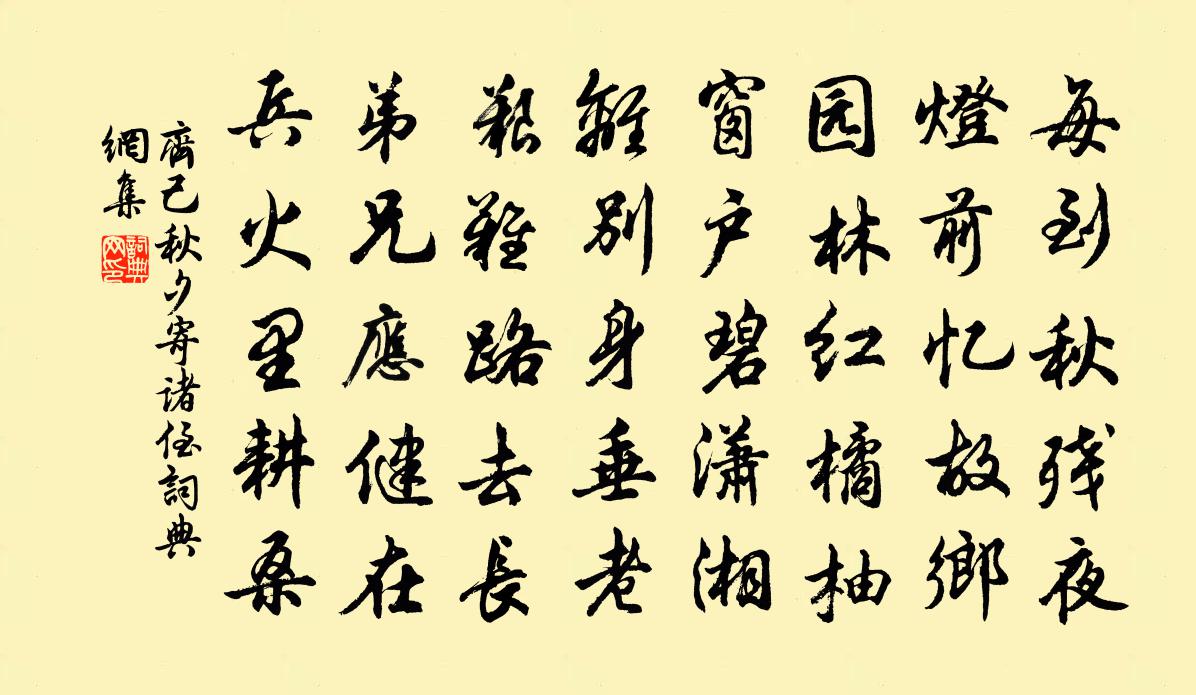 每到秋残夜
燈前忆故鄉
园林红橘柚
窗户碧瀟湘
離别身垂老
艱難路去長
弟兄應健在
兵火里耕桑
齊己秋夕寄诸侄詞典
網集
詞典
网印